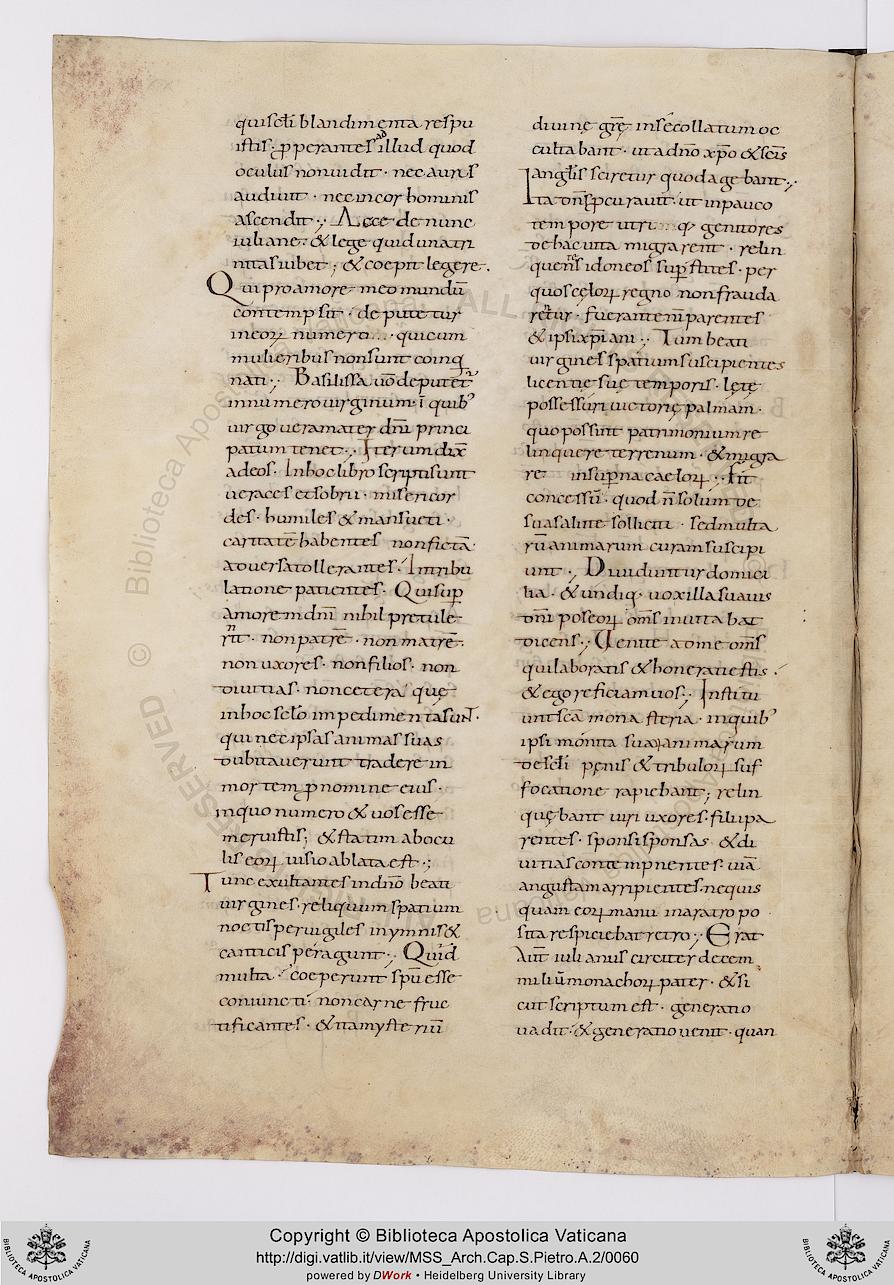 qui sc̄li blandimenta respu
istis· ꝓperantes ad illud quod
oculus non uidit· nec auris
audiuit· nec in cor hominis
ascendit·; Accede nunc
iuliane· & lege quid unatri
nitas iubet; & coepit legere·
Qui pro amore meo mundū
contempsit· deputetur
in eoꝝ numero· qui cum
mulieribus non sunt coinq
nati·; Basilissa uō deputet̄
in numero uirginum· ī quib;
uirgo uera mater dn̄i princi
patum tenet·; Iterum dix̄
ad eos· In hoc libro scripti sunt
ueraces et sobrii· misericor
des· humiles & mansueti·
caritatē habentes non fictā·
aduersa tollerantes· In tribu
latione patientes· Qui suꝑ
amorem dn̄i nihil pretule
rn̄t· non patrē· non matrē·
non uxores· non filios· non
diuitias· non cetera quę
in hoc sc̄lo impedimenta sunt·
qui nec ipsas animas suas
dubitauerunt tradere in
mortem ꝓ nomine eius·
in quo numero & uos esse
meruistis; & statim ab ocu
lis eoꝝ uisio ablata est·;
Tunc exultantes in dn̄o beati
uirgines· reliquum spatium
noctis peruigiles in ymnis &
canticis peragunt·; Quid
multa· coeperunt spū esse
coniuncti· non carne fruc
tificantes· & ita mysteriū
diuinę grē in se collatum oc
cultabant· ut a dn̄o xp̄o & sc̄is
angl̄is sciretur quod agebant·;
Ita dn̄s ꝓcurauit· ut in pauco
tempore genitores
de hac uita migrarent· relin
quentes idoneos suꝑstites· per
quos cęloꝝ regno non frauda
rētur· fuerant en̄i parentes
& ipsi xp̄iani·; Tum beati
uirgines spatium suscipientes
licentię suę temporis· lętę
possessuri uictorię palmam·
quo possint patrimonium re
linquere terrenum· & migra
re in suꝑna caeloꝝ·; Fit
concessū· quod n̄ solum de
sua salute solliciti· sed multa
rū animarum curam suscipi
unt·; Diuiduntur domici
lia· & undiq; uox illa suauis
dn̄i poseoꝝ om̄s inuitabat
dicens·; Uenite ad me om̄s
qui laboratis & honerati estis·
& ego reficiam uos·; Institu
unt sc̄a monasteria· in quib;
ipsi monita suaꝝ animarum
de sc̄li pęnis & tribuloꝝ suf
focatione rapiebant; relin
quębant uiri uxores· filii pa
rentes· sponsi sponsas & di
uitias contempnentes· uiā
angustam arripientes· nequis
quam eoꝝ manu in aratro po
sita respiciebat retro·; Erat
aut̄ iulianus circiter decem
miliū monachoꝝ pater· & si
cut scriptum est· generatio
uadit· & generatio uenit· quan
Copyright © Biblioteca Apostolica Vaticana
http://digi.vatlib.it/view/MSS_Arch.Cap.S.Pietro.A.2/0060
powered by DWork • Heidelberg University Library